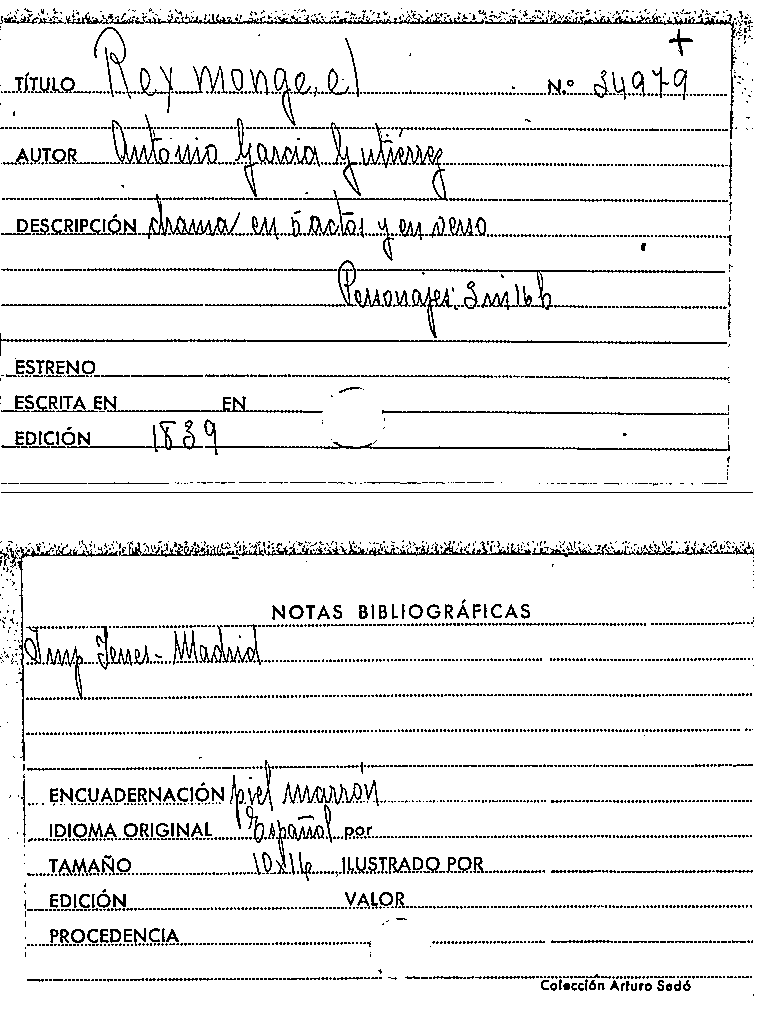 +
TÍTULO Rey monge, el N.º 34979
AUTOR Antonio García Gutiérrez
DESCRIPCIÓN drama en 5 actos y en verso
Personajes: 3m 16h
ESTRENO
ESCRITA EN EN
EDICIÓN 1839
NOTAS BIBLIOGRÁFICAS
Imp Yenes - Madrid
ENCUADERNACIÓN piel marrón
IDIOMA ORIGINAL Español por
TAMAÑO 10x16 ILUSTRADO POR
EDICIÓN VALOR
PROCEDENCIA
Colección Arturo Sedó